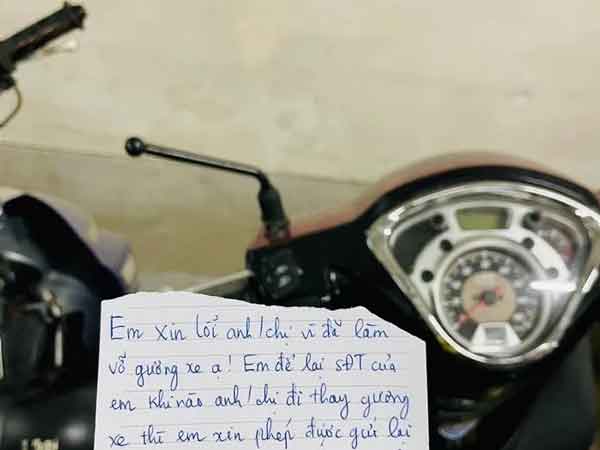 Em xin lỗi anh/chị vì đã làm
vỡ gương xe ạ! Em để lại SĐT của
em khi nào anh/chị đi thay gương
xe thì em xin phép được gửi lại